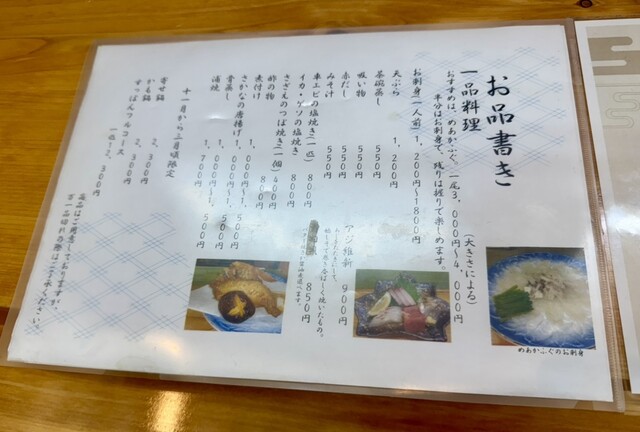 お品書き
一品料理 (大きさによる)
おすすめは、めあかふぐ、一尾3,000円~4,000円
半分はお刺身で、残りは握りで楽しめます。
お刺身(一人前)1,200円~1800円
天ぷら 1,200円
茶碗蒸し 550円
吸い物 550円
赤だし 550円
みそ汁 550円
車エビの塩焼き(一匹) 800円
イカ・ゲソの塩焼き 800円
さざえのつぼ焼き(一個)400円
酢の物 800円
煮付け 1,000円~1,500円
さかなの唐揚げ 1,000円~1,500円
骨蒸し
浦焼 1,700円
アジ維新 900円
850円
十一月から三月頃限定
寄せ鍋 2,300円
かも鍋 2,300円
すっぽんフルコース
一匹12,300円
産品はご用意しておりますが、
万一品切れの際はご了承ください。
めあかふぐのお刺身